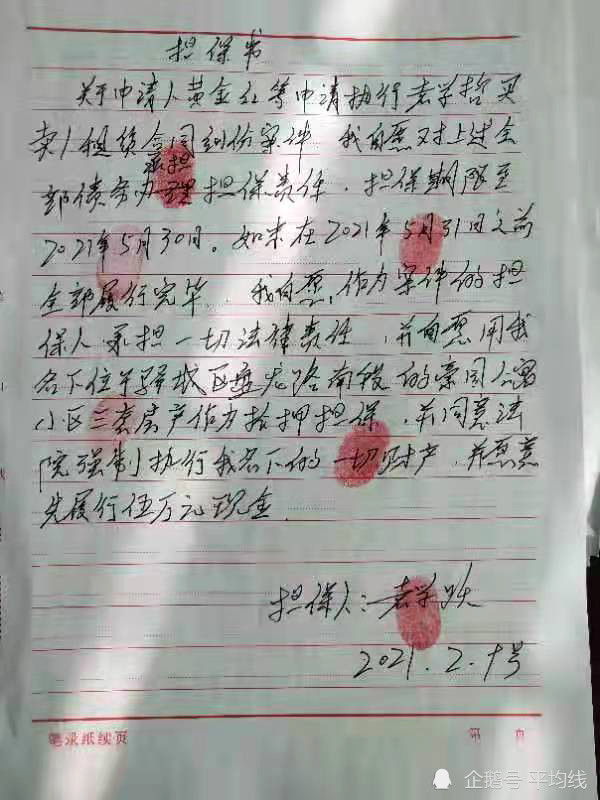 担保书
关于申请人黄金红等申请执行袁学哲买
卖、租赁合同纠纷案件，我自愿对上述全
承担
部债务办理担保责任，担保期限至
2021年5月30日。如未在2021年5月31日之前
全部履行完毕，我自愿作为案件的担
保人承担一切法律责任，并自愿用我
名下位于驿城区 路南段的 公寓
小区三套房产作为抵押担保，并同意法
院强制执行我名下的一切财产，并愿意
先履行伍万元现金。
担保人：袁学
2021.2.9号
笔录纸续页
第 页
企鹅号 平均线